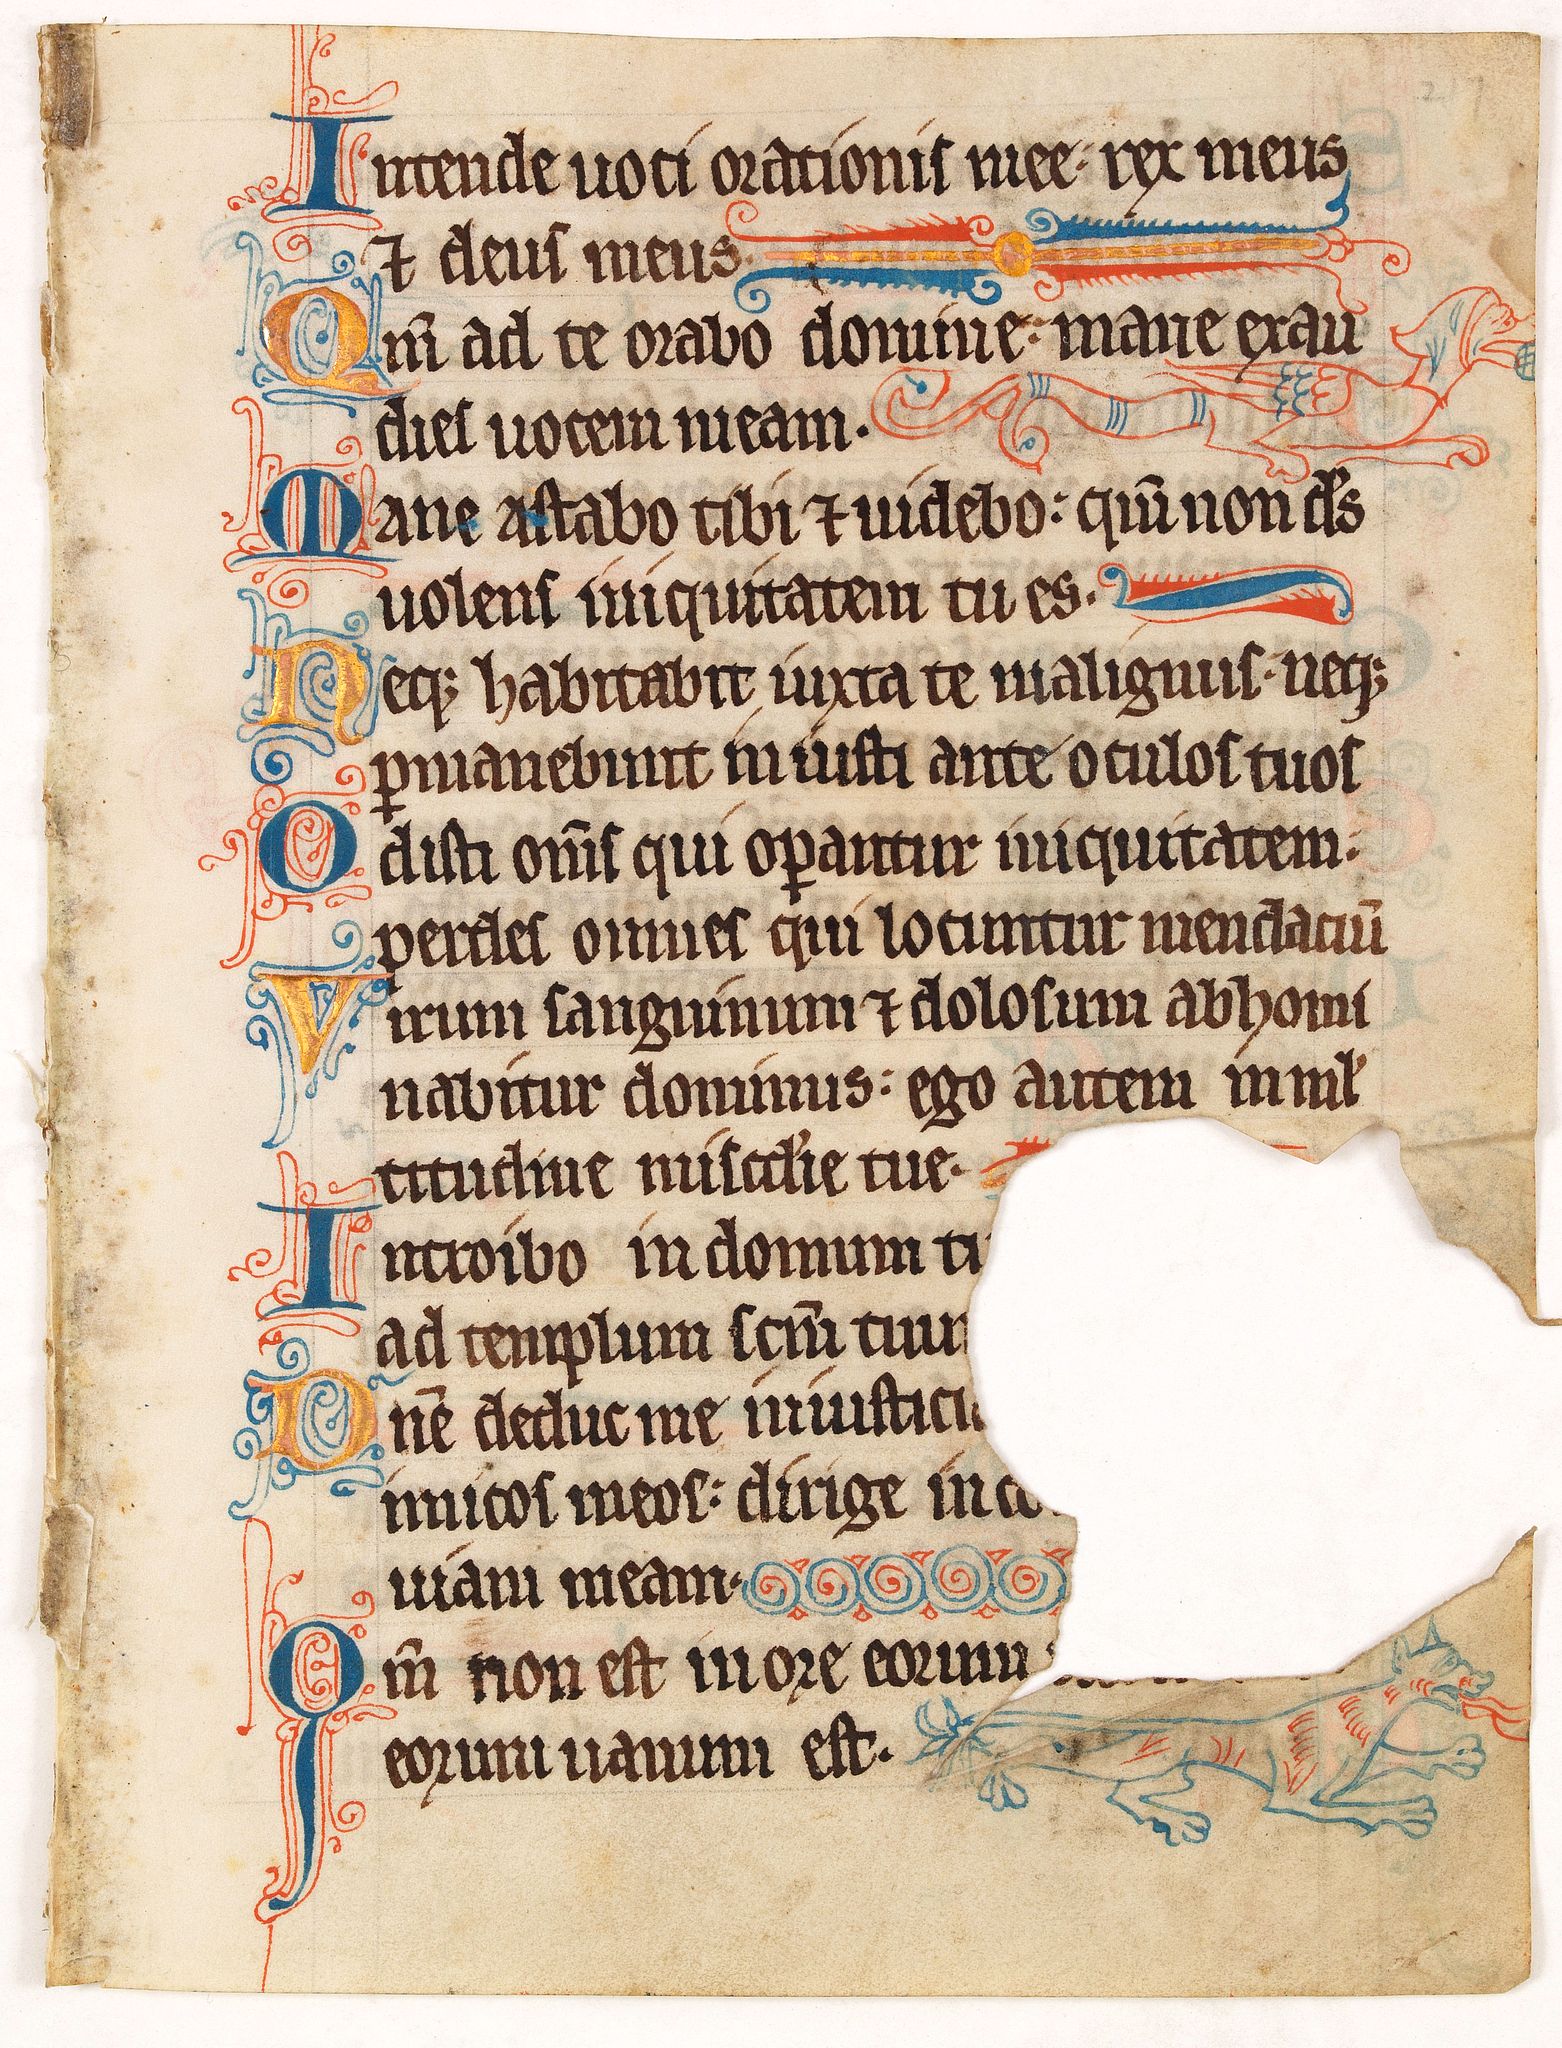 Intende uoci orationis mee: rex meus
⁊ deus meus.
Qm̅ ad te orabo domine: mane exau
dies uocem meam.
Mane astabo tibi ⁊ uidebo: qm̅ non ds̅
uolens iniquitatem tu es.
Neqꝫ habitabit iuxta te malignus: neqꝫ
ꝑmanebunt iniusti ante oculos tuos
Odisti om̅s qui oꝑantur iniquitatem:
perdes omnes qui locuntur mendaciu̅
Virum sanguinum ⁊ dolosum abhomi
nabitur dominus: ego autem in ml̛
titudine miscd̛ie tue.
Introibo in domum
ad templum scm̅
Dne̅ deduc me in
imicos meos: dirige in
uiam meam.
Qm̅ non est in ore eorum
eorum uanum est.